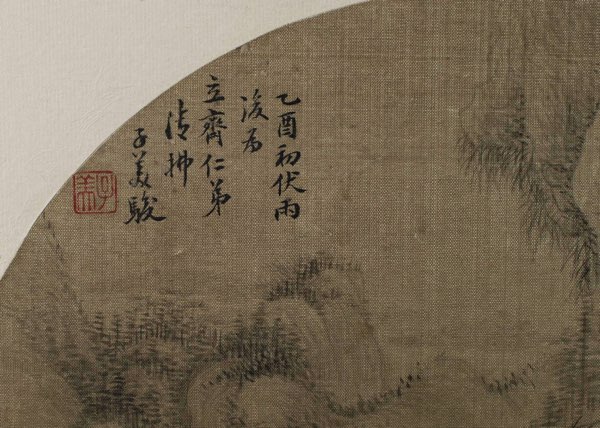 乙酉初伏雨
後為
立齋仁弟
清拂
子美駿